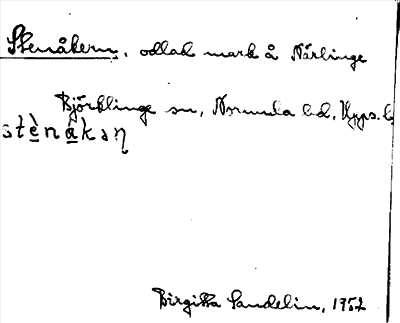 Stenåkern, odlad mark å Närlinge
Björklinge sn, Norunda hd, Upps. l.
stènåkəɳ
Birgitta Sandelin, 1952